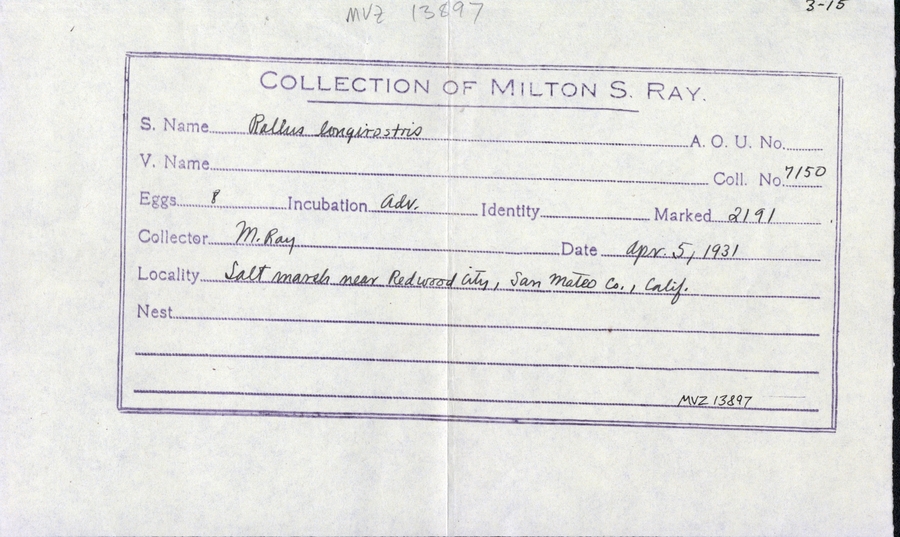 MVZ 13897
3-15
COLLECTION OF MILTON S. RAY.
S. Name Rallus longirostris A. O. U. No.
V. Name Coll. No. 7150
Eggs 8 Incubation adv. Identity Marked 2191
Collector M. Ray Date Apr. 5, 1931
Locality Salt marsh near Redwood City, San Mateo Co., Calif.
Nest
MVZ 13897